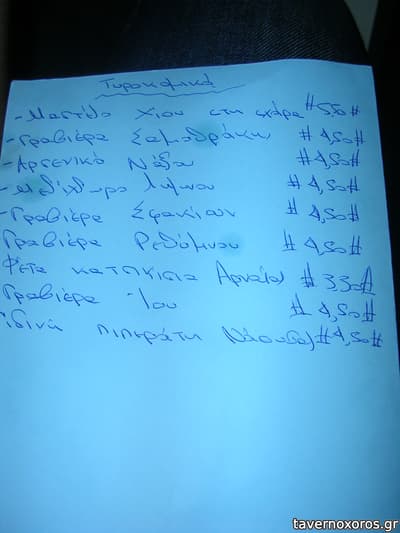 Τυροκομικά
- Μαστέλο Χίου στη σχάρα #5,50#
- Γραβιέρα Σαμοθράκη #4,50#
- Αρσενικό Νάξου #4,50#
- Μελίχλωρο Λήμνου #4,50#
- Γραβιέρα Σφακίων #4,50#
Γραβιέρα Ρεθύμνου #4,50#
Φέτα κατσικίσια #3,30#
Γραβιέρα Ίου #4,50#
πιπεράτη Νάουσας #4,50#
tavernoxoros.gr